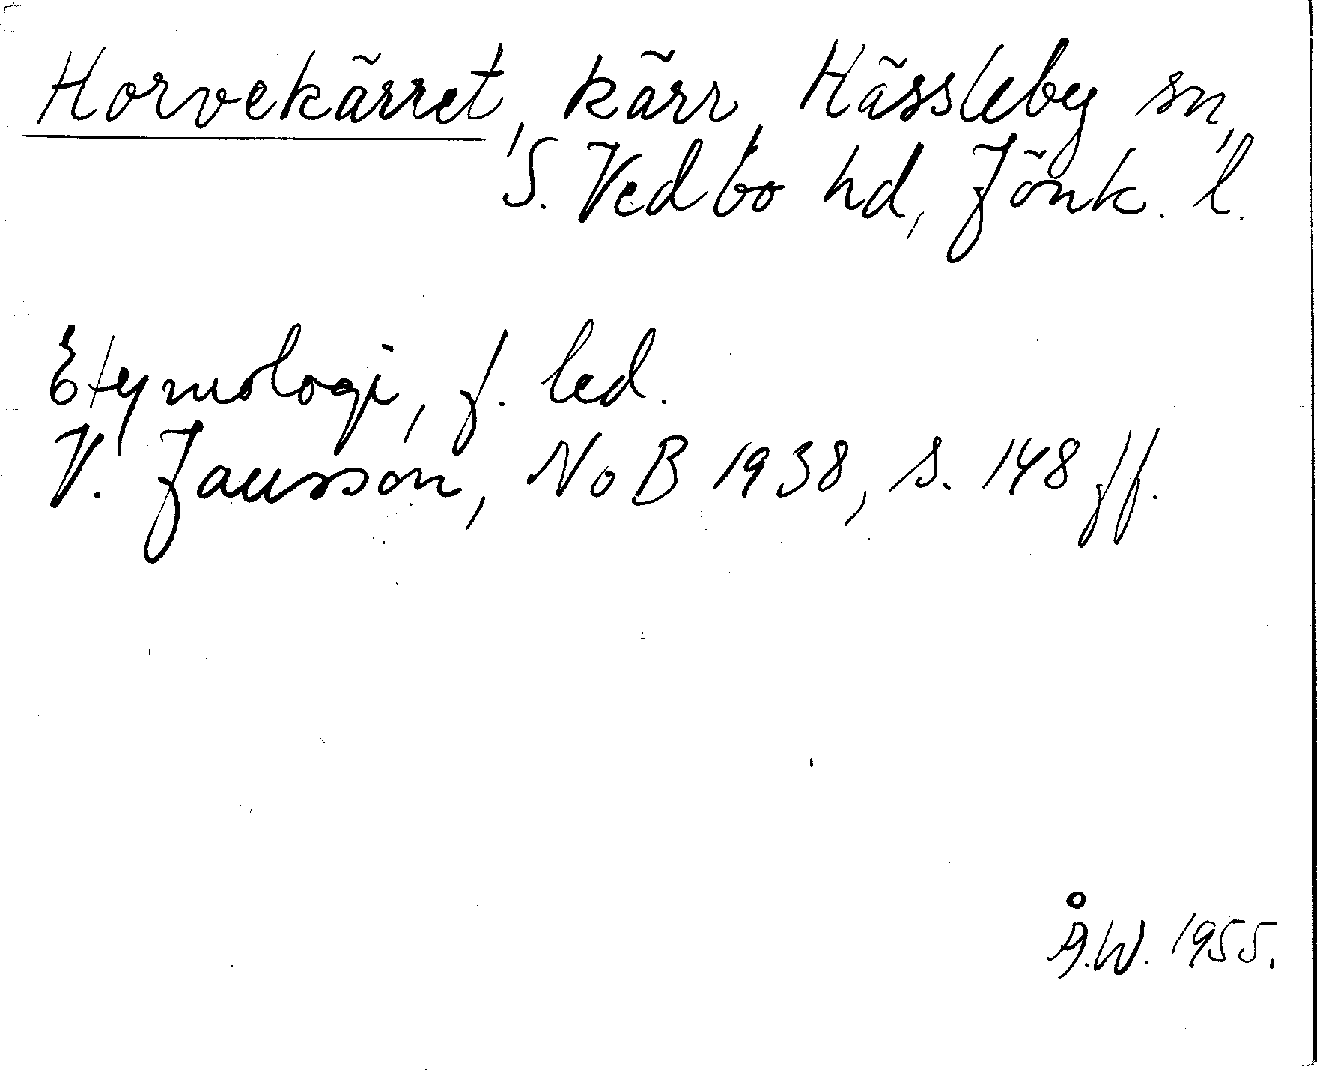 Horvekärret, kärr, Hässleby sn,
S. Vedbo hd, Jönk. l.
Etymologi, f. led.
V. Jansson, NoB 1938, s. 148 ff.
Å.W. 1955.